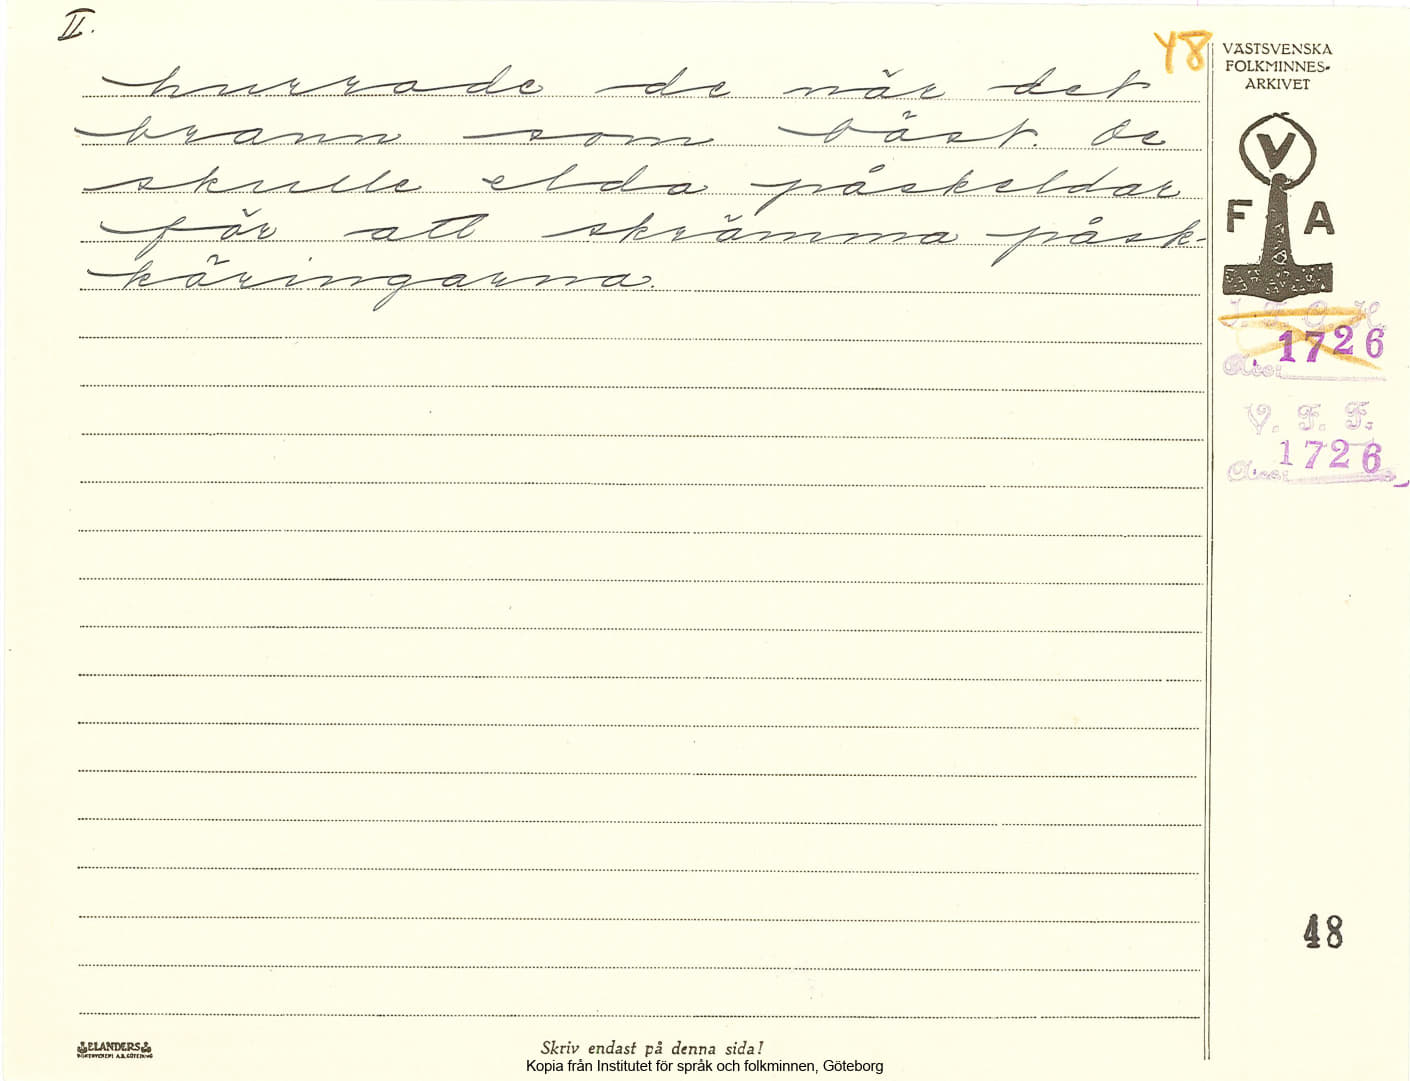 II.
48
hurrade de när det
brann som bäst. De
skulle elda påskeldar
för att skrämma påsk-
käringarna.
VÄSTSVENSKA
FOLKMINNES-
ARKIVET
V
F A
I. F. G. H.
1726
Acc:
V. F. F.
1726
Acc:
48
ELANDERS
BOKTRYCKERI A.B. GÖTEBORG
Skriv endast på denna sida!
Kopia från Institutet för språk och folkminnen, Göteborg